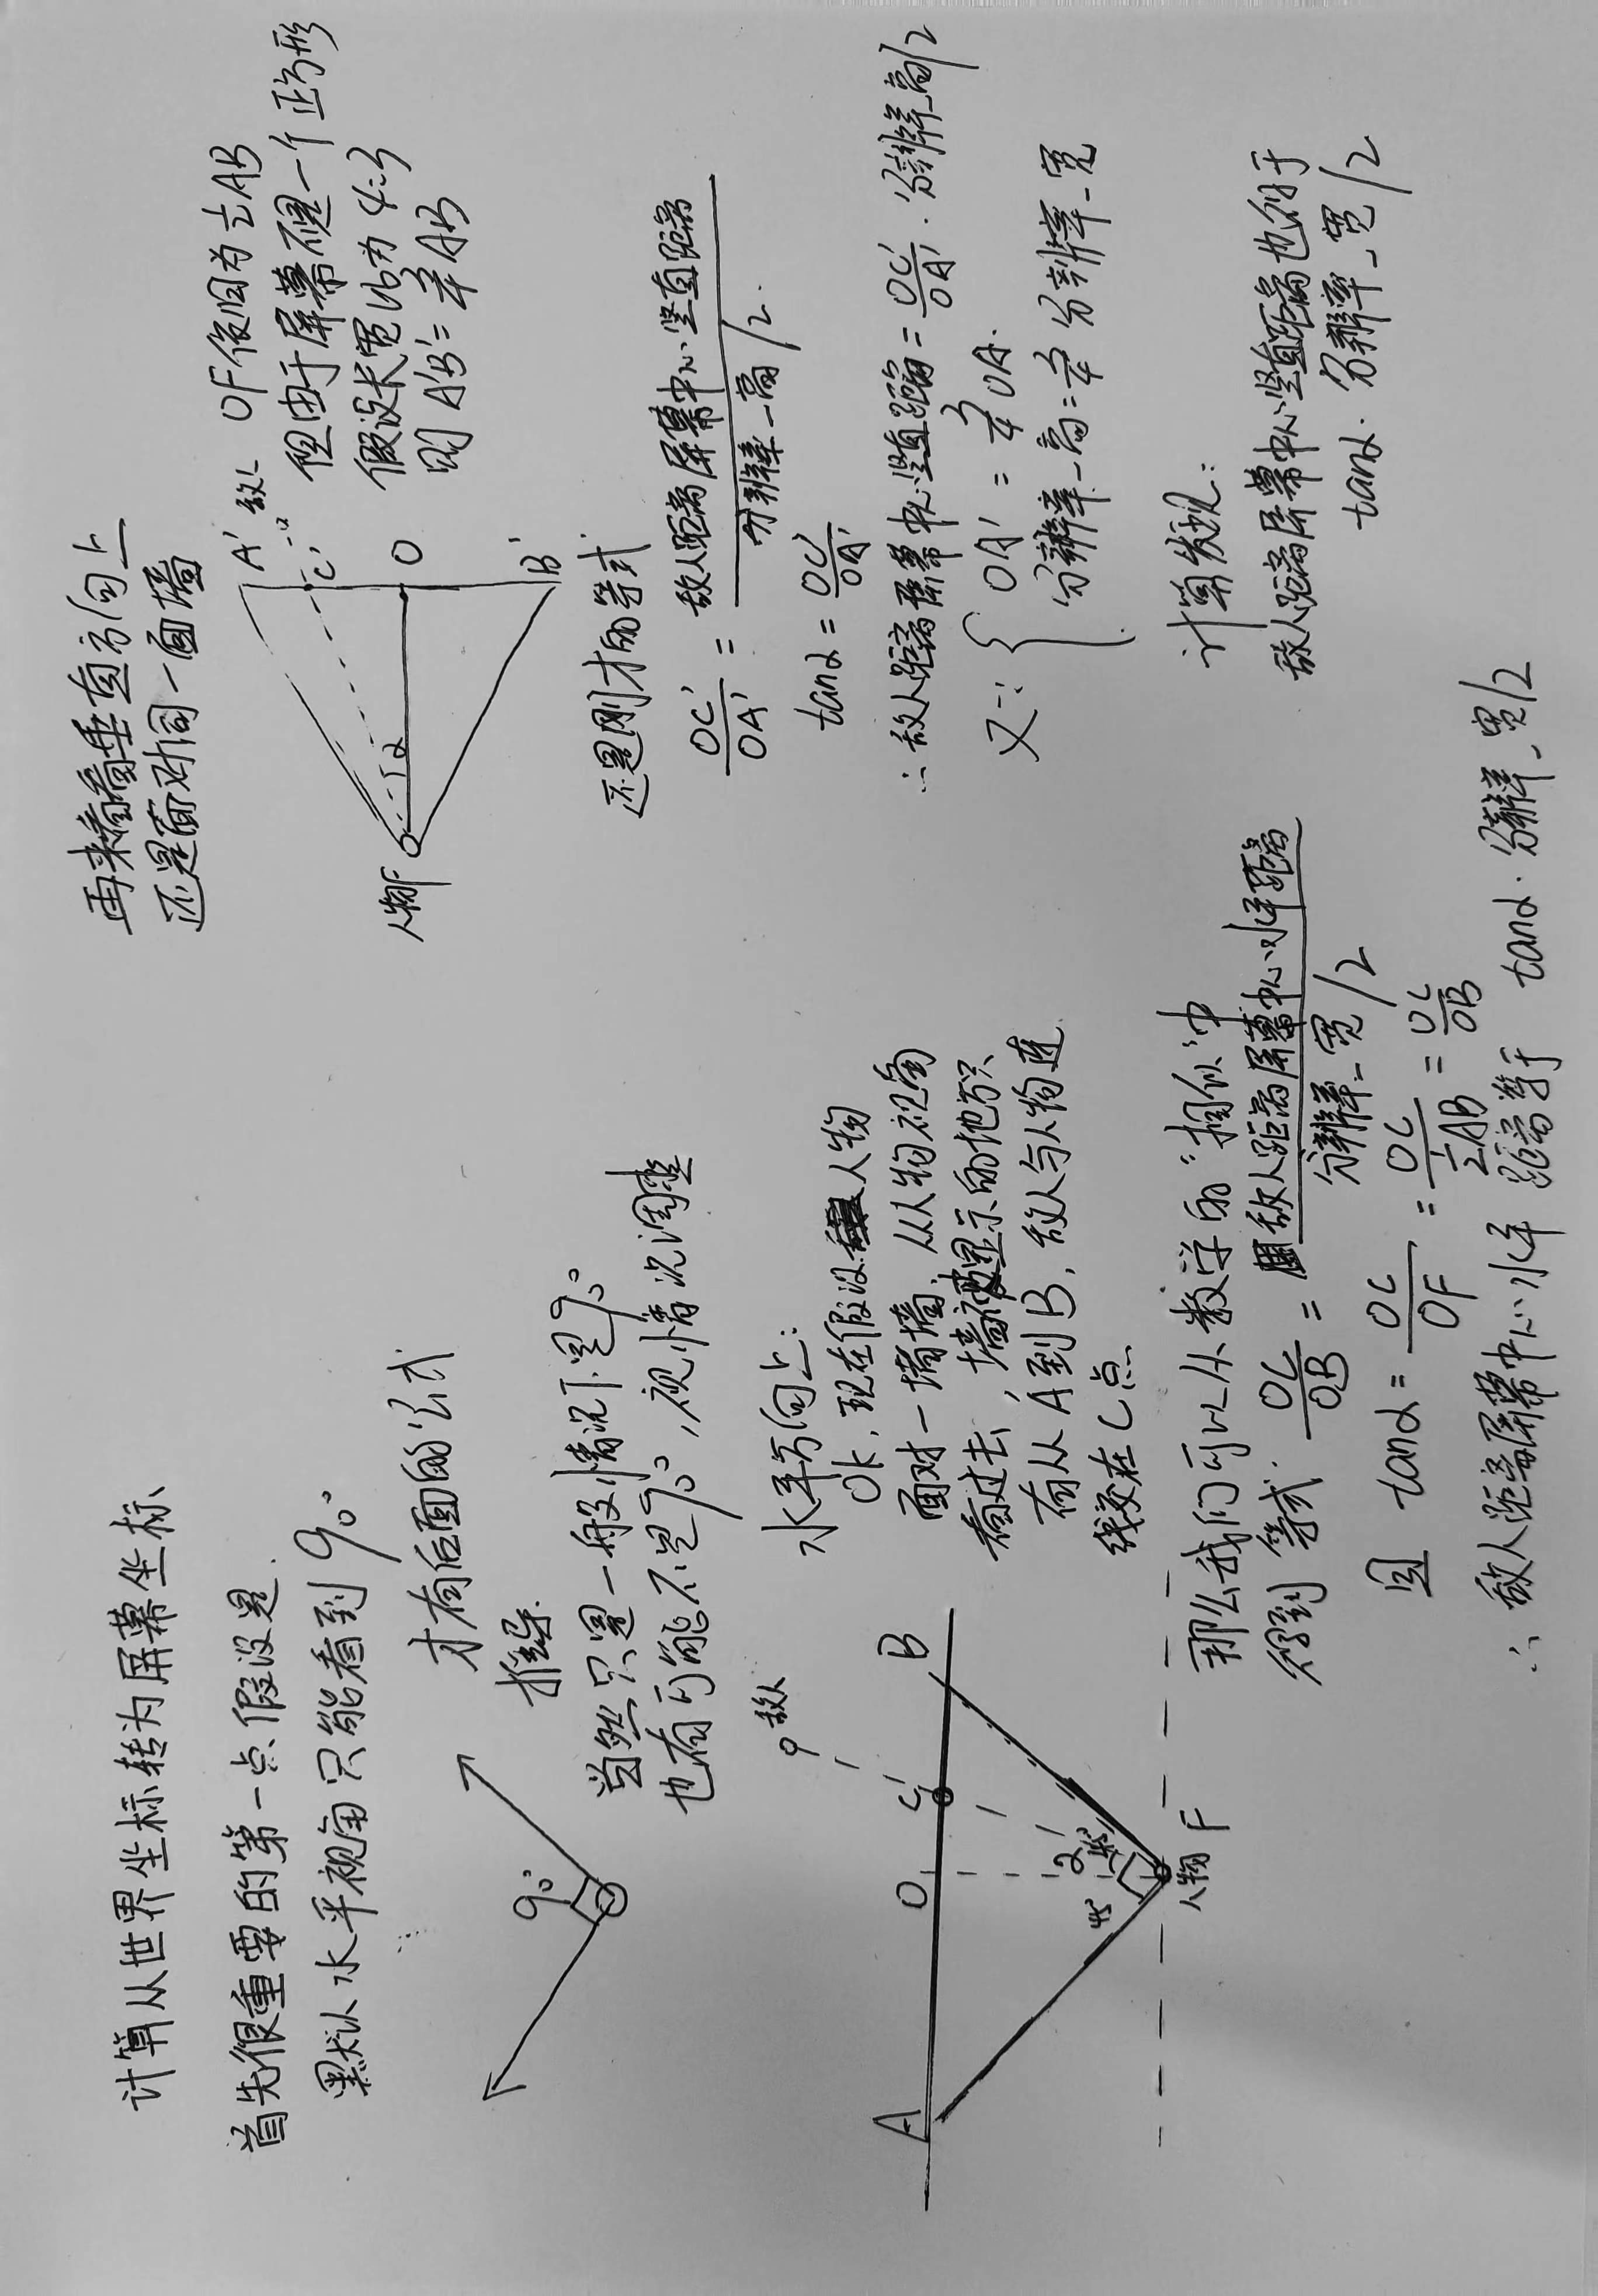 计算从世界坐标转为屏幕坐标
首先很重要的第一点假设是
默认水平视角只能看到90°
才有后面的公式
推导.
90°
当然只是一般情况下是90°
也有可能不是90°,视情况调整
水平方向上:
Ok,现在假设人物
面对一堵墙,从人物视角
看过去,墙被显示的地方只
有从A到B,敌人与人物连
线交在C点
A
O
C
B
敌人
45°
α
45°
人物
F
那么我们可以从数学的"相似"中
得到等式. OC/OB = 敌人距离屏幕中心水平距离/分辨率_宽/2
因 tanα = OC/OF = OC/½AB = OC/OB
∴ 敌人距离屏幕中心水平距离等于 tanα·分辨率_宽/2
再来看看垂直方向上
还是面对同一面墙
A'
敌人
C'
O
B'
α
人物F
OF依旧为½AB
但由于屏幕不是一个正方形
假设长宽比为4:3
则A'B'=¾AB
还是刚才的等式
OC'/OA' = 敌人距离屏幕中心竖直距离/分辨率_高/2.
tanα = OC'/OA'
∴ 敌人距离屏幕中心竖直距离 = OC'/OA'·分辨率_高/2
又∵ { OA' = ¾OA.
分辨率_高=¾分辨率_宽
计算发现:
敌人距离屏幕中心竖直距离也约于
tanα·分辨率_宽/2